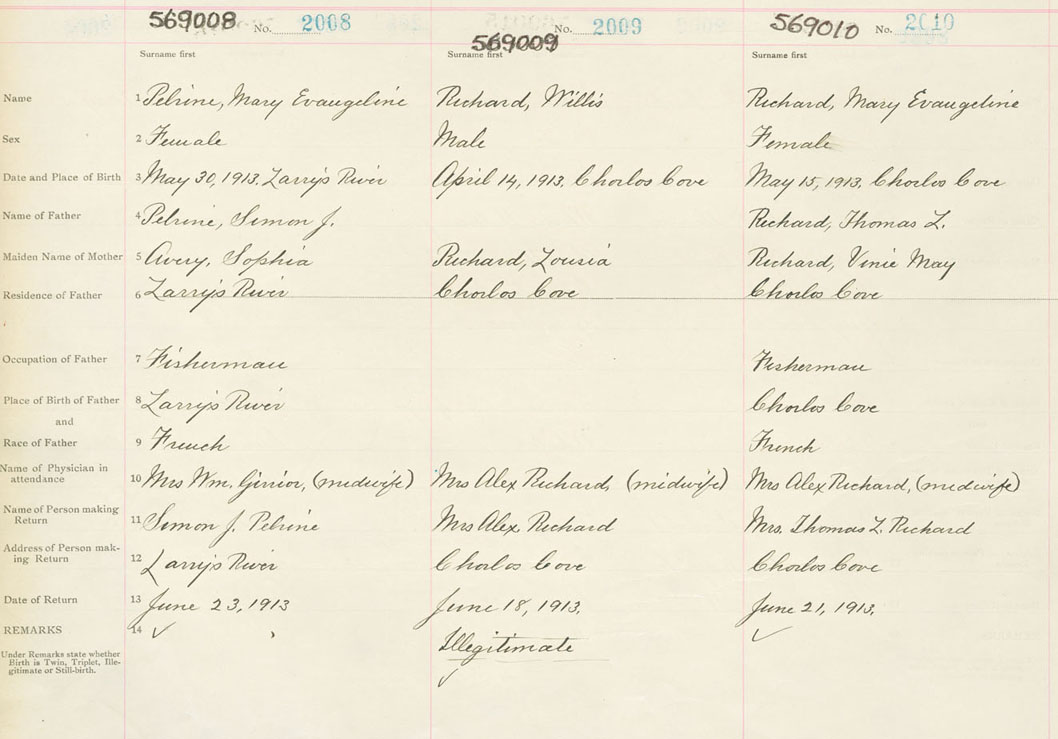 569008 No. 2008 569009 No. 2009 569010 No. 2010
Surname first Surname first Surname first
Name 1 Pelrine, Mary Evangeline Richard, Willis Richard, Mary Evangeline
Sex 2 Female Male Female
Date and Place of Birth 3 May 30, 1913. Larrys River April 14, 1913, Charlos Cove May 15, 1913, Charlos Cove
Name of Father 4 Pelrine, Simon J. Richard, Thomas L.
Maiden Name of Mother 5 Avery, Sophia Richard, Lousia Richard, Vinie May
Residence of Father 6 Larrys River Charlos Cove Charlos Cove
Occupation of Father 7 Fisherman Fisherman
Place of Birth of Father 8 Larrys River Charlos Cove
and
Race of Father 9 French French
Name of Physician in
attendance 10 Mrs Wm. (midwife) Mrs Alex Richard, (midwife) Mrs Alex Richard, (midwife)
Name of Person making
Return 11 Simon J. Pelrine Mrs Alex, Richard Mrs. Thomas L. Richard
Address of Person mak-
ing Return 12 Larrys River Charlos Cove Charlos Cove
Date of Return 13 June 23, 1913 June 18, 1913. June 21, 1913.
REMARKS 14 Illegitimate
Under Remarks state whether
Birth is Twin, Triplet, Ille-
gitimate or Still-birth.